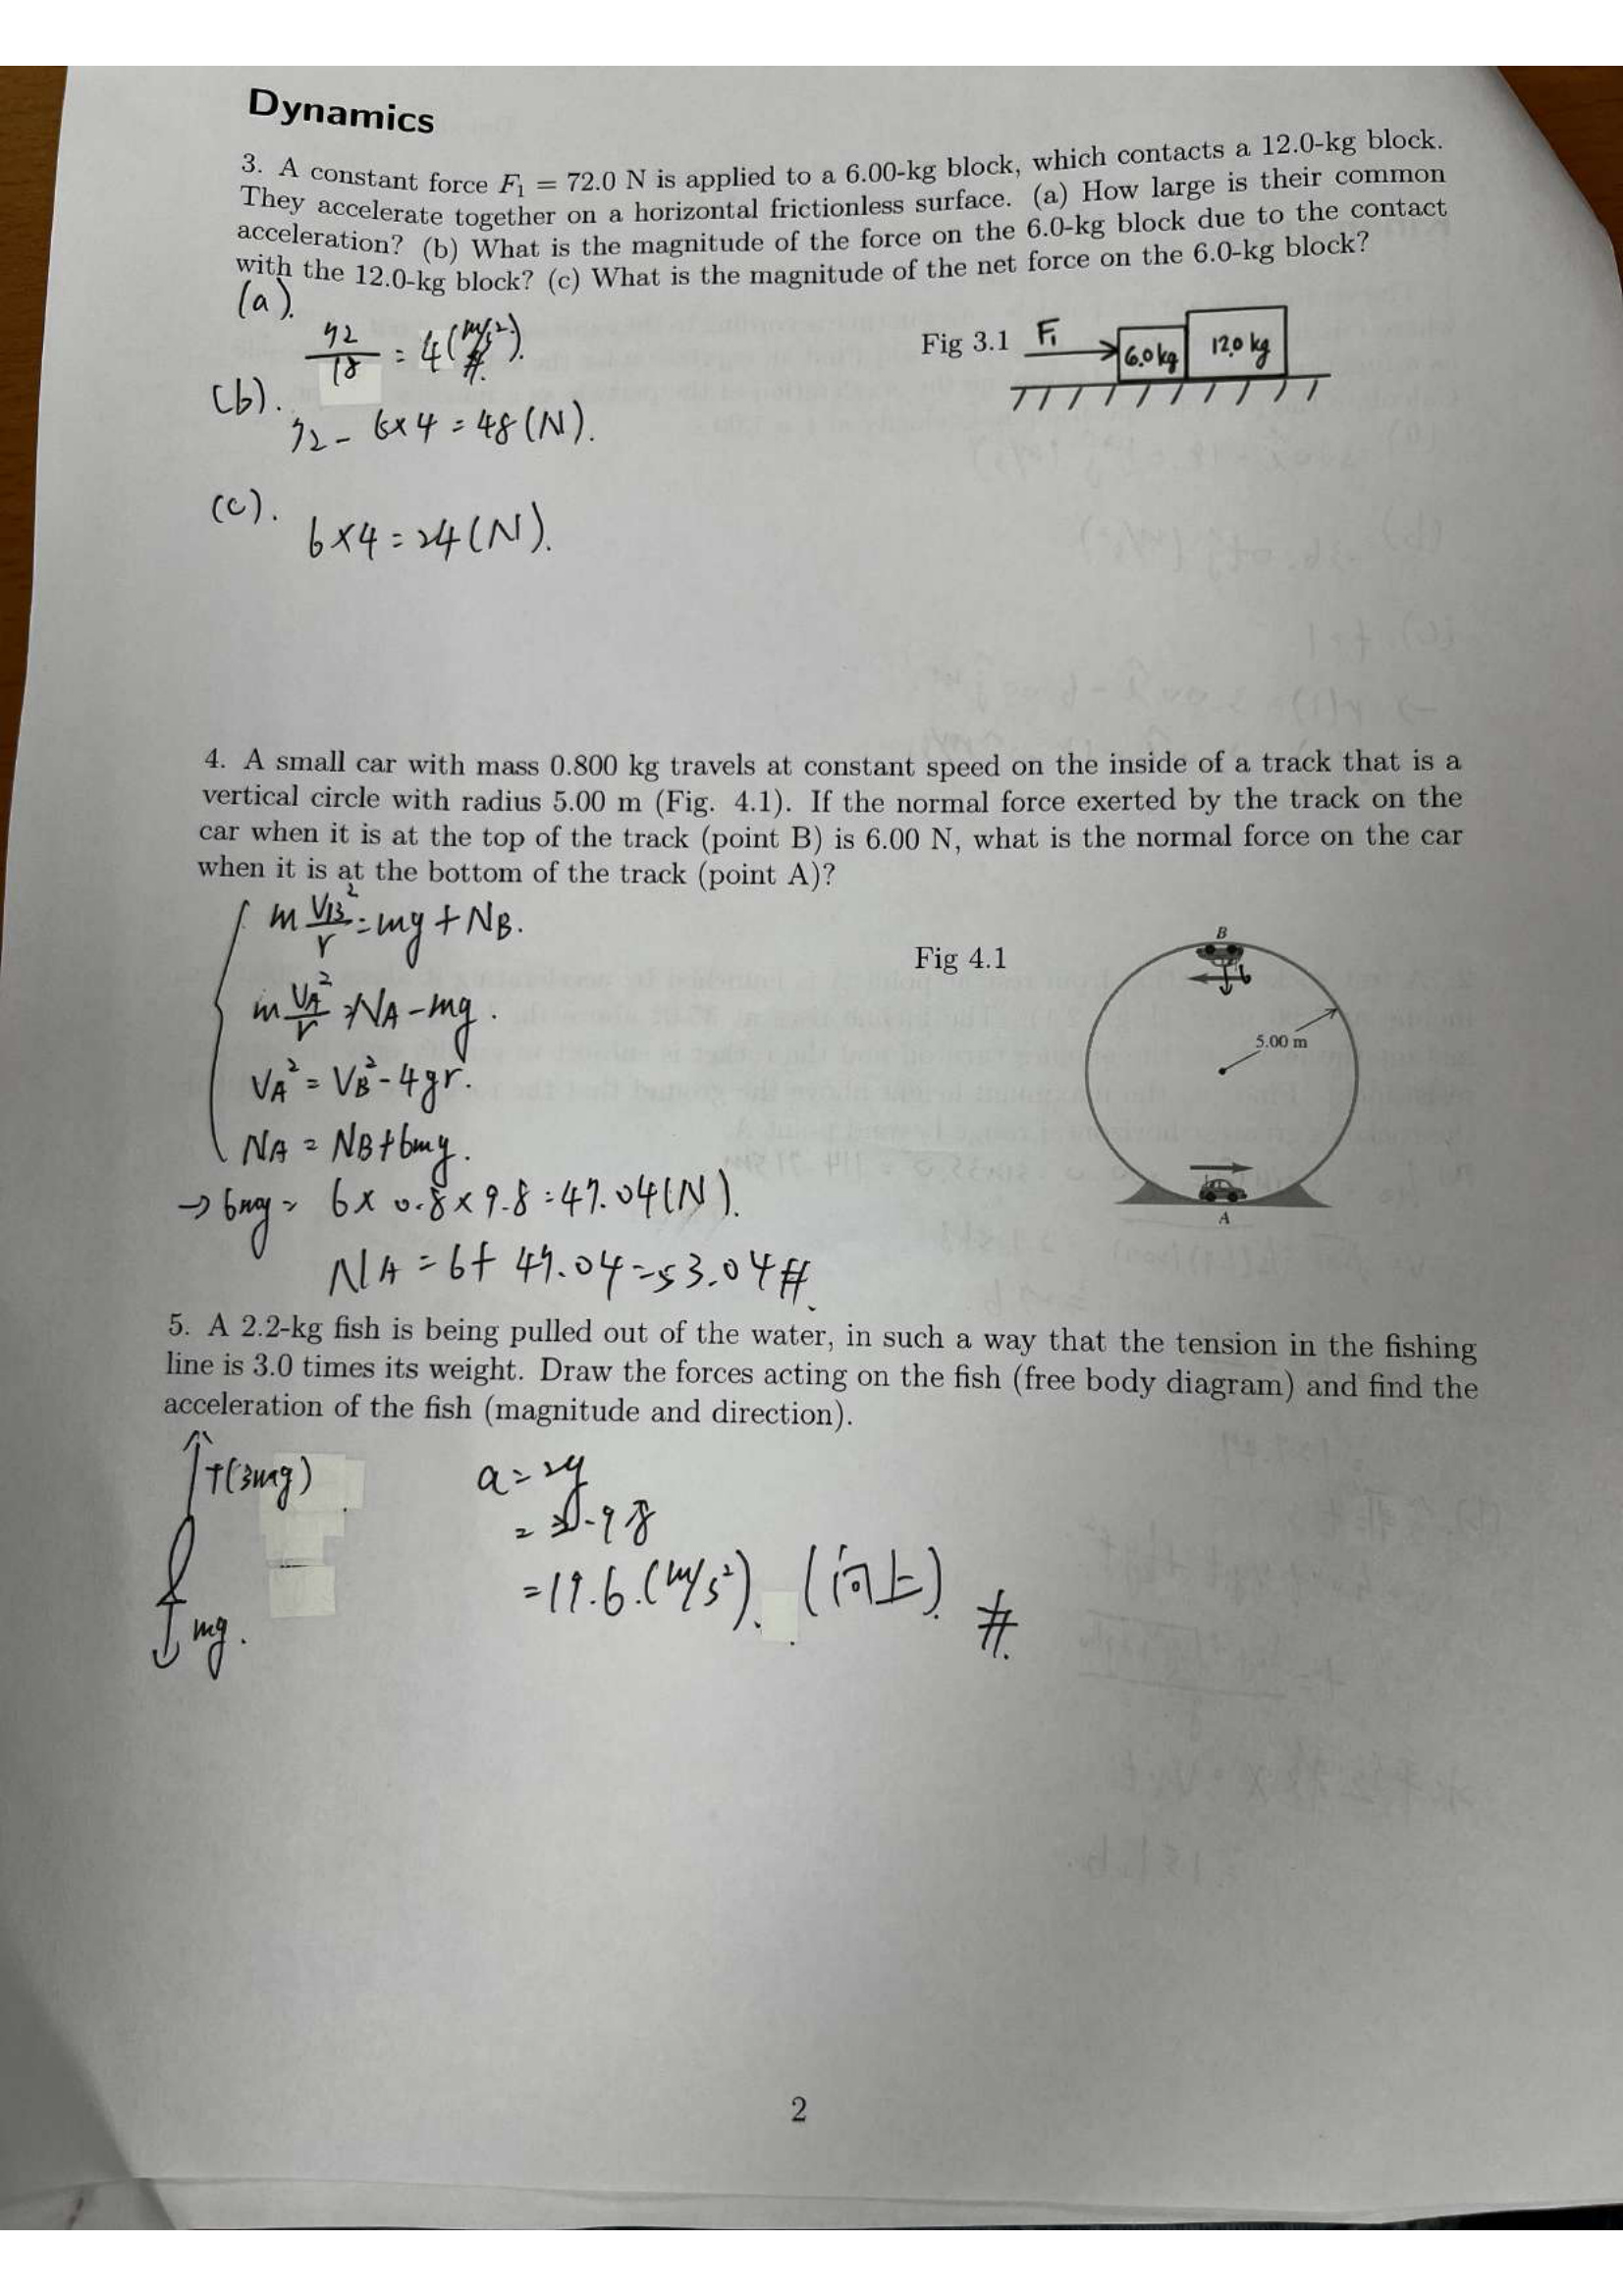 Dynamics
3. A constant force F₁ = 72.0 N is applied to a 6.00-kg block, which contacts a 12.0-kg block.
They accelerate together on a horizontal frictionless surface. (a) How large is their common
acceleration? (b) What is the magnitude of the force on the 6.0-kg block due to the contact
with the 12.0-kg block? (c) What is the magnitude of the net force on the 6.0-kg block?
(a).
72/18 = 4 (m/s²). #.
Fig 3.1 F₁ 6.0kg 12.0 kg
(b).
72 - 6×4 = 48 (N).
(c).
6×4 = 24 (N).
4. A small car with mass 0.800 kg travels at constant speed on the inside of a track that is a
vertical circle with radius 5.00 m (Fig. 4.1). If the normal force exerted by the track on the
car when it is at the top of the track (point B) is 6.00 N, what is the normal force on the car
when it is at the bottom of the track (point A)?
m VB²/r = mg + NB.
Fig 4.1
B
6
5.00 m
A
m VA²/r = NA - mg.
VA² = VB² - 4gr.
NA = NB + 6mg.
→ 6mg = 6 × 0.8 × 9.8 = 47.04 (N).
NA = 6 + 47.04 = 53.04 #.
5. A 2.2-kg fish is being pulled out of the water, in such a way that the tension in the fishing
line is 3.0 times its weight. Draw the forces acting on the fish (free body diagram) and find the
acceleration of the fish (magnitude and direction).
T(3mg)
mg.
a = 2g
= 19.6 (m/s²). (向上) #.
2